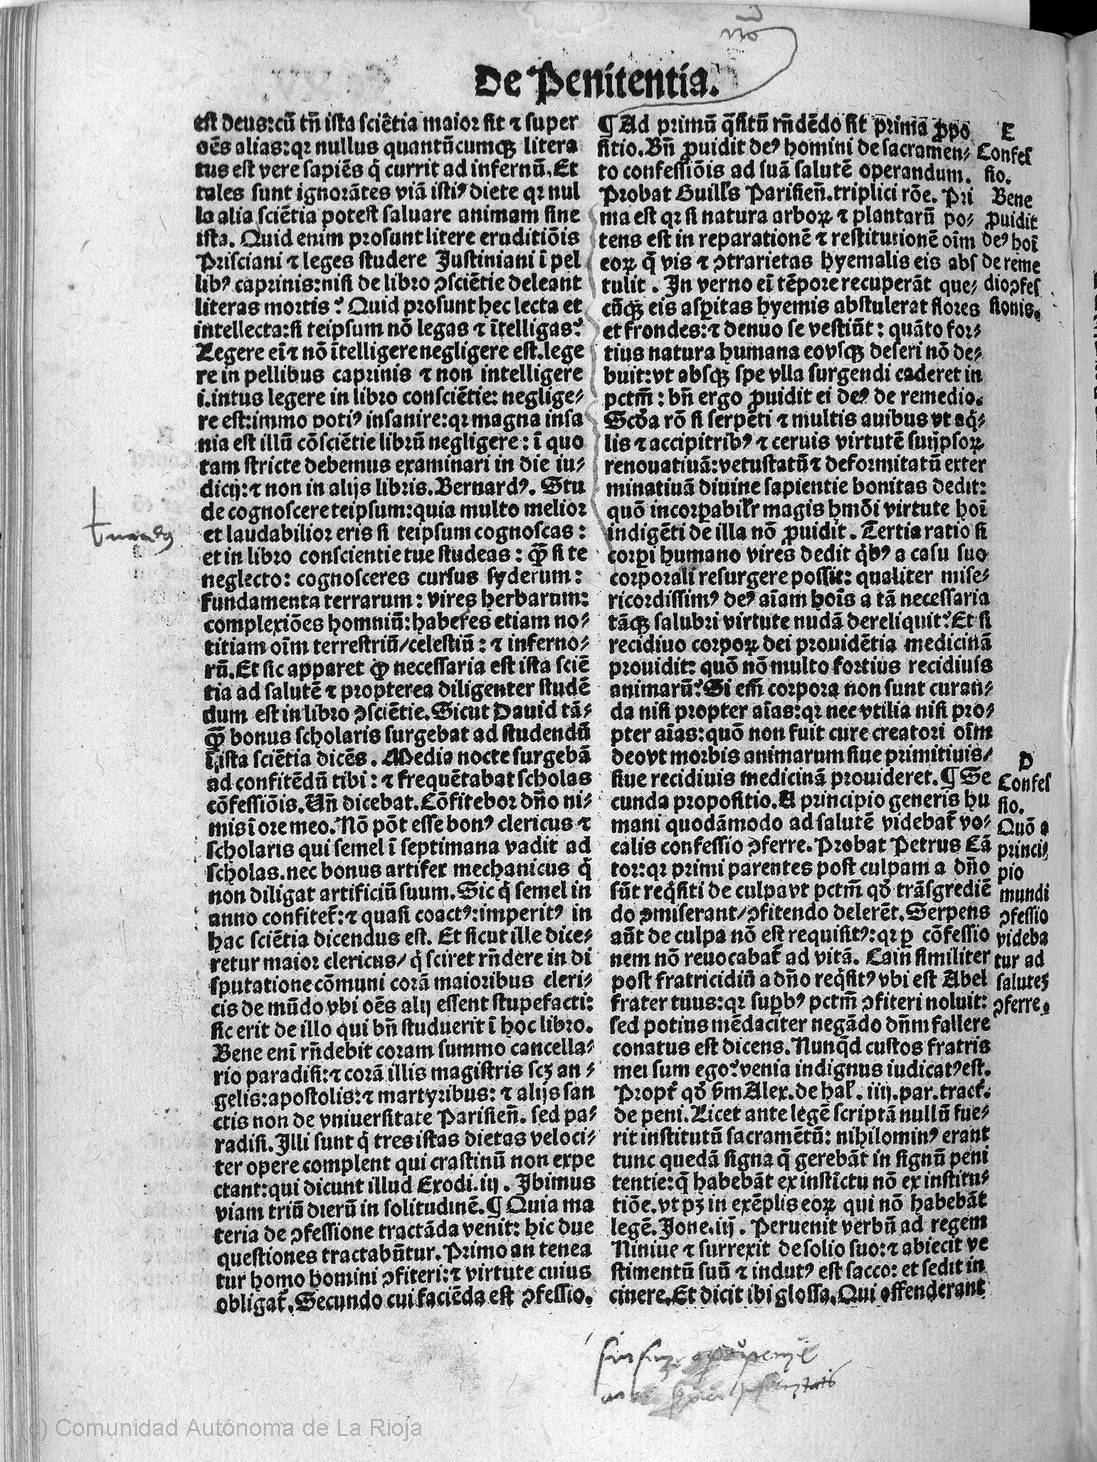 De Penitentia.
est deus:cũ tñ ista sciẽtia maior sit ⁊ super
oẽs alias:qꝛ nullus quantũcumqꝫ litera
tus est vere sapiẽs q̃ currit ad infernũ. Et
tales sunt ignorãtes viã istiꝰ diete qꝛ nul
la alia sciẽtia potest saluare animam sine
ista. Quid enim prosunt litere eruditiõis
Prisciani ⁊ leges studere Justiniani ĩ pel
libꝰ caprinis:nisi de libro ꝯsciẽtie deleant
literas mortis? Quid prosunt hec lecta et
intellecta:si teipsum nõ legas ⁊ ĩtelligas?
Legere eĩ ⁊ nõ ĩtelligere negligere est.lege
re in pellibus caprinis ⁊ non intelligere
i.intus legere in libro consciẽtie: neglige⸗
re est:immo potiꝰ insanire:qꝛ magna insa
nia est illũ cõsciẽtie librũ negligere: ĩ quo
tam stricte debemus examinari in die iu⸗
dicij:⁊ non in alijs libris.Bernardꝰ. Stu
de cognoscere teipsum:quia multo melior
et laudabilior eris si teipsum cognoscas:
et in libro conscientie tue studeas: ꝙ̃ si te
neglecto: cognosceres cursus syderum:
fundamenta terrarum: vires herbarum:
complexiões homniũ:haberes etiam no⸗
titiam oĩm terrestriũ/celestiũ: ⁊ inferno⸗
rũ.Et sic apparet ꝙ necessaria est ista sciẽ
tia ad salutẽ ⁊ propterea diligenter studẽ
dum est in libro ꝯsciẽtie.Sicut Dauid tã⸗
ꝙ̃ bonus scholaris surgebat ad studendũ
ĩ ista sciẽtia dicẽs. Media nocte surgebã
ad confitẽdũ tibi: ⁊ frequẽtabat scholas
cõfessiõis.Uñ dicebat.Cõfitebor dño ni⸗
mis ĩ ore meo.Nõ põt esse bonꝰ clericus ⁊
scholaris qui semel ĩ septimana vadit ad
scholas.nec bonus artifex mechanicus q̃
non diligat artificiũ suum.Sic q̃ semel in
anno confitet̃:⁊ quasi coactꝰ:imperitꝰ in
hac sciẽtia dicendus est. Et sicut ille dice⸗
retur maior clericus/ q̃ sciret rñdere in di
sputatione cõmuni corã maioribus cleri⸗
cis de mũdo vbi oẽs alij essent stupefacti:
sic erit de illo qui bñ studuerit ĩ hoc libro.
Bene enĩ rñdebit coram summo cancella⸗
rio paradisi:⁊ corã illis magistris scꝫ an⸗
gelis:apostolis:⁊ martyribus: ⁊ alijs san
ctis non de vniuersitate Parisieñ. sed pa⸗
radisi.Illi sunt q̃ tres istas dietas veloci⸗
ter opere complent qui crastinũ non expe
ctant:qui dicunt illud Exodi.iij. Ibimus
viam triũ dierũ in solitudinẽ.¶ Quia ma
teria de ꝯfessione tractãda venit: hic due
questiones tractabũtur.Primo an tenea
tur homo homini ꝯfiteri:⁊ virtute cuius
obligat̃.Secundo cui faciẽda est ꝯfessio.
¶ Ad primũ q̃sitũ rñdẽdo sit prima ꝓpo
sitio. Bñ ꝓuidit deꝰ homini de sacramen⸗
to confessiõis ad suã salutẽ operandum.
Probat Guills̃ Parisieñ.triplici rõe. Pri
ma est qꝛ si natura arboꝝ ⁊ plantarũ po⸗
tens est in reparationẽ ⁊ restitutionẽ oĩm
eoꝝ q̃ vis ⁊ ꝯtrarietas hyemalis eis abs
tulit. In verno eĩ tẽpore recuperãt que⸗
cũqꝫ eis asꝑitas hyemis abstulerat flores
et frondes:⁊ denuo se vestiũt: quãto for⸗
tius natura humana eovsqꝫ deseri nõ de⸗
buit:vt absqꝫ spe vlla surgendi caderet in
pctm̃: bñ ergo ꝓuidit ei deꝰ de remedio.
Scd̃a rõ si serpẽti ⁊ multis auibus vt aq̃⸗
lis ⁊ accipitribꝰ ⁊ ceruis virtutẽ suijpsoꝝ
renouatiuã:vetustatũ ⁊ deformitatũ exter
minatiuã diuine sapientie bonitas dedit:
quõ incõꝑabilr̃ magis hmõi virtute hoĩ
indigẽti de illa nõ ꝓuidit. Tertia ratio si
corꝑi humano vires dedit q̃bꝰ a casu suo
corporali resurgere possit: qualiter mise⸗
ricordissimꝰ deꝰ aĩam hoĩs a tã necessaria
tãqꝫ salubri virtute nudã dereliquit?Et si
recidiuo corpoꝝ dei prouidẽtia medicinã
prouidit: quõ nõ multo fortius recidiuis
animarũ?Si em̃ corpora non sunt curan⸗
da nisi propter aĩas:qꝛ nec vtilia nisi pro⸗
pter aĩas:quõ non fuit cure creatori oĩm
deo vt morbis animarum siue primitiuis/
siue recidiuis medicinã prouideret.¶ Se
cunda propositio.A principio generis hu
mani quodãmodo ad salutẽ videbat̃ vo⸗
calis confessio ꝯferre.Probat Petrus Cã
tor:qꝛ primi parentes post culpam a dño
sũt req̃siti de culpa vt pctm̃ qð trãsgrediẽ
do ꝯmiserant/ꝯfitendo delerẽt.Serpens
aũt de culpa nõ est requisitꝰ:qꝛ ꝑ cõfessio
nem nõ reuocabat̃ ad vitã. Cain similiter
post fratricidiũ a dño req̃sitꝰ vbi est Abel
frater tuus:qꝛ suꝑbꝰ pctm̃ ꝯfiteri noluit:
sed potius mẽdaciter negãdo dñm fallere
conatus est dicens.Nunq̃d custos fratris
mei sum ego?venia indignus iudicatꝰ est.
Propt̃ qð ẜm Alex.de hal̃. iiij.par.tract̃.
de peni.Licet ante legẽ scriptã nullũ fue⸗
rit institutũ sacramẽtũ: nihilominꝰ erant
tunc quedã signa q̃ gerebãt in signũ peni
tentie:q̃ habebãt ex instĩctu nõ ex institu⸗
tiõe.vt pꝫ in exẽplis eoꝝ qui nõ habebãt
legẽ.Jone.iij. Peruenit verbũ ad regem
Niniue ⁊ surrexit de solio suo:⁊ abiecit ve
stimentũ suũ ⁊ indutꝰ est sacco: et sedit in
cinere.Et dicit ibi glossa.Qui offenderant
C
Confes
sio.
Bene
ꝓuidit
deꝰ hoĩ
de reme
dio ꝯfes
sionis.
D
Confes
sio.
Quõ a
princi⸗
pio
mundi
ꝯfessio
videba
tur ad
salutẽ
ꝯferre.
(c) Comunidad Autónoma de La Rioja